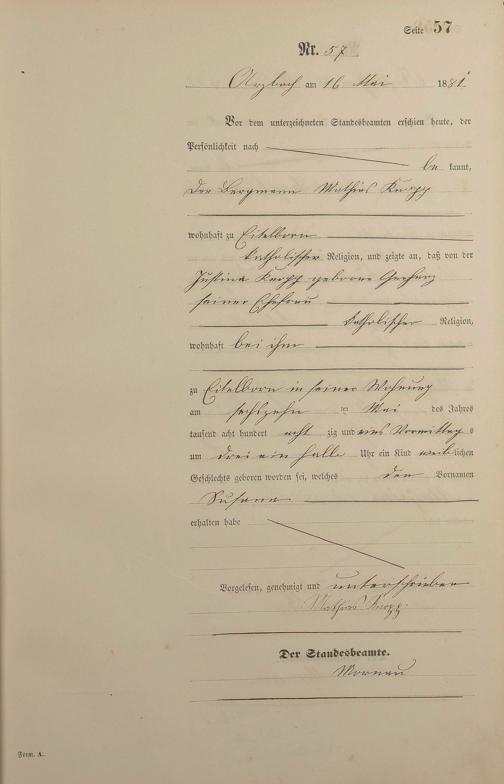 Seite 57
Nr. 57
Arzbach am 16 Mai 1881
Vor dem unterzeichneten Standesbeamten erschien heute, der
Persönlichkeit nach
be kannt,
der Bergmann Mathias Knopp
wohnhaft zu Eitelborn
katholischer Religion, und zeigte an, daß von der
Justina Knopp geborene Gerharz
seiner Ehefrau
katholischer Religion,
wohnhaft bei ihm
zu Eitelborn in seiner Wohnung
am sechszehn ten Mai des Jahres
tausend acht hundert acht zig und eins Vormittag s
um drei ein halb Uhr ein Kind weiblichen
Geschlechts geboren worden sei, welches den Vornamen
Susana
erhalten habe
Vorgelesen, genehmigt und unterschrieben
Mathias Knopp
Der Standesbeamte.
Form. A.